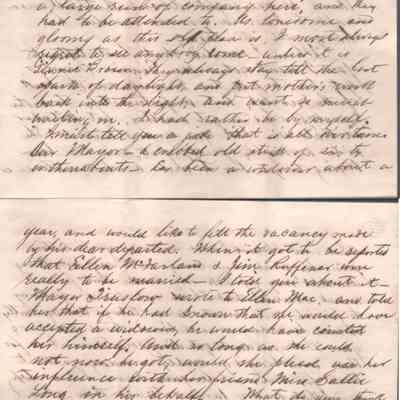 a large                 of company here, and they
had to be attended to. As lonesome and
gloomy as this old place is, I most always
regret to see anybody come unless it is
                    They always stay till the last
spark of daylight, and put mother's work
back into the night and want so much
waiting on. I had rather be by myself.
I must tell you a joke that is all over town.
Our Mayor a crooked old stick of six ty
                      has been a widower about a
year, and would like to fill the vacancy made
by his dear departed. When it got to be reported
that Ellen McFarland & Jim Ruffner were
really to be married— I told you about it—
Mayor Truslow wrote to Ellen Mac, and told
her that if he had known that she would have
accepted a widower, he would have courted
her himself, and so long as she could
not now be got, would she please use her
influence with her friend Miss Sallie
Long in his behalf.   What do you think